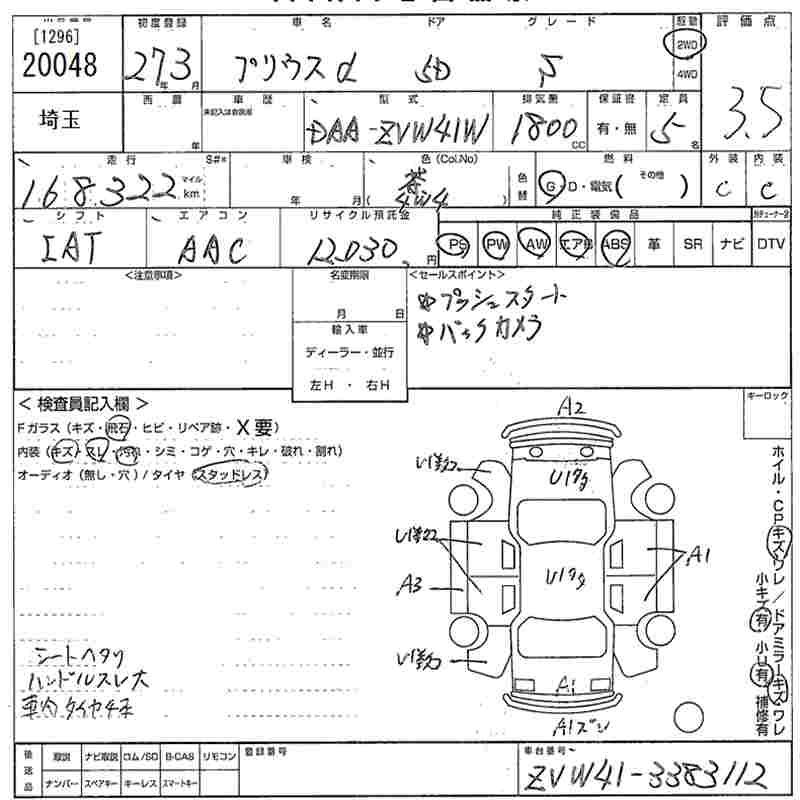 [1296]
20048
初度登録
273
年 月
車名
プリウスα
ドア
5D
グレード
S
駆動
2WD
4WD
評価点
3.5
埼玉
西暦
年
車歴
未記入は自家用
型式
DAA-ZVW41W
排気量
1800
CC
保証書
有・無
定員
5
名
走行
168322
マイル
km
S#*
車検
年 月
色(Col.No)
茶
(4W4)
色替
燃料
G・D・電気( その他 )
外装
C
内装
C
シフト
IAT
エアコン
AAC
リサイクル預託金
12030
円
純正装備品
PS PW AW エアB ABS 革 SR ナビ DTV
<注意事項>
名変期限
月 日
輸入車
ディーラー・並行
左H ・ 右H
<セールスポイント>
プッシュスタート
バックカメラ
キーロック
< 検査員記入欄 >
Fガラス(キズ・飛石・ヒビ・リペア跡・X要)
内装(キズ・スレ・汚れ・シミ・コゲ・穴・キレ・破れ・割れ)
オーディオ(無し・穴)/タイヤ(スタッドレス)
A2
A3
A1
A1
シートヘタリ
ハンドルスレ大
車内タイヤ4本
ホイル・CPキズワレ/ドアミラーキズワレ
小キズ有 小U有 補修有
後送品
取説 ナビ取説 ロム/SD B-CAS リモコン
ナンバー スペアキー キーレス スマートキー
登録番号
車台番号
ZVW41-3383112